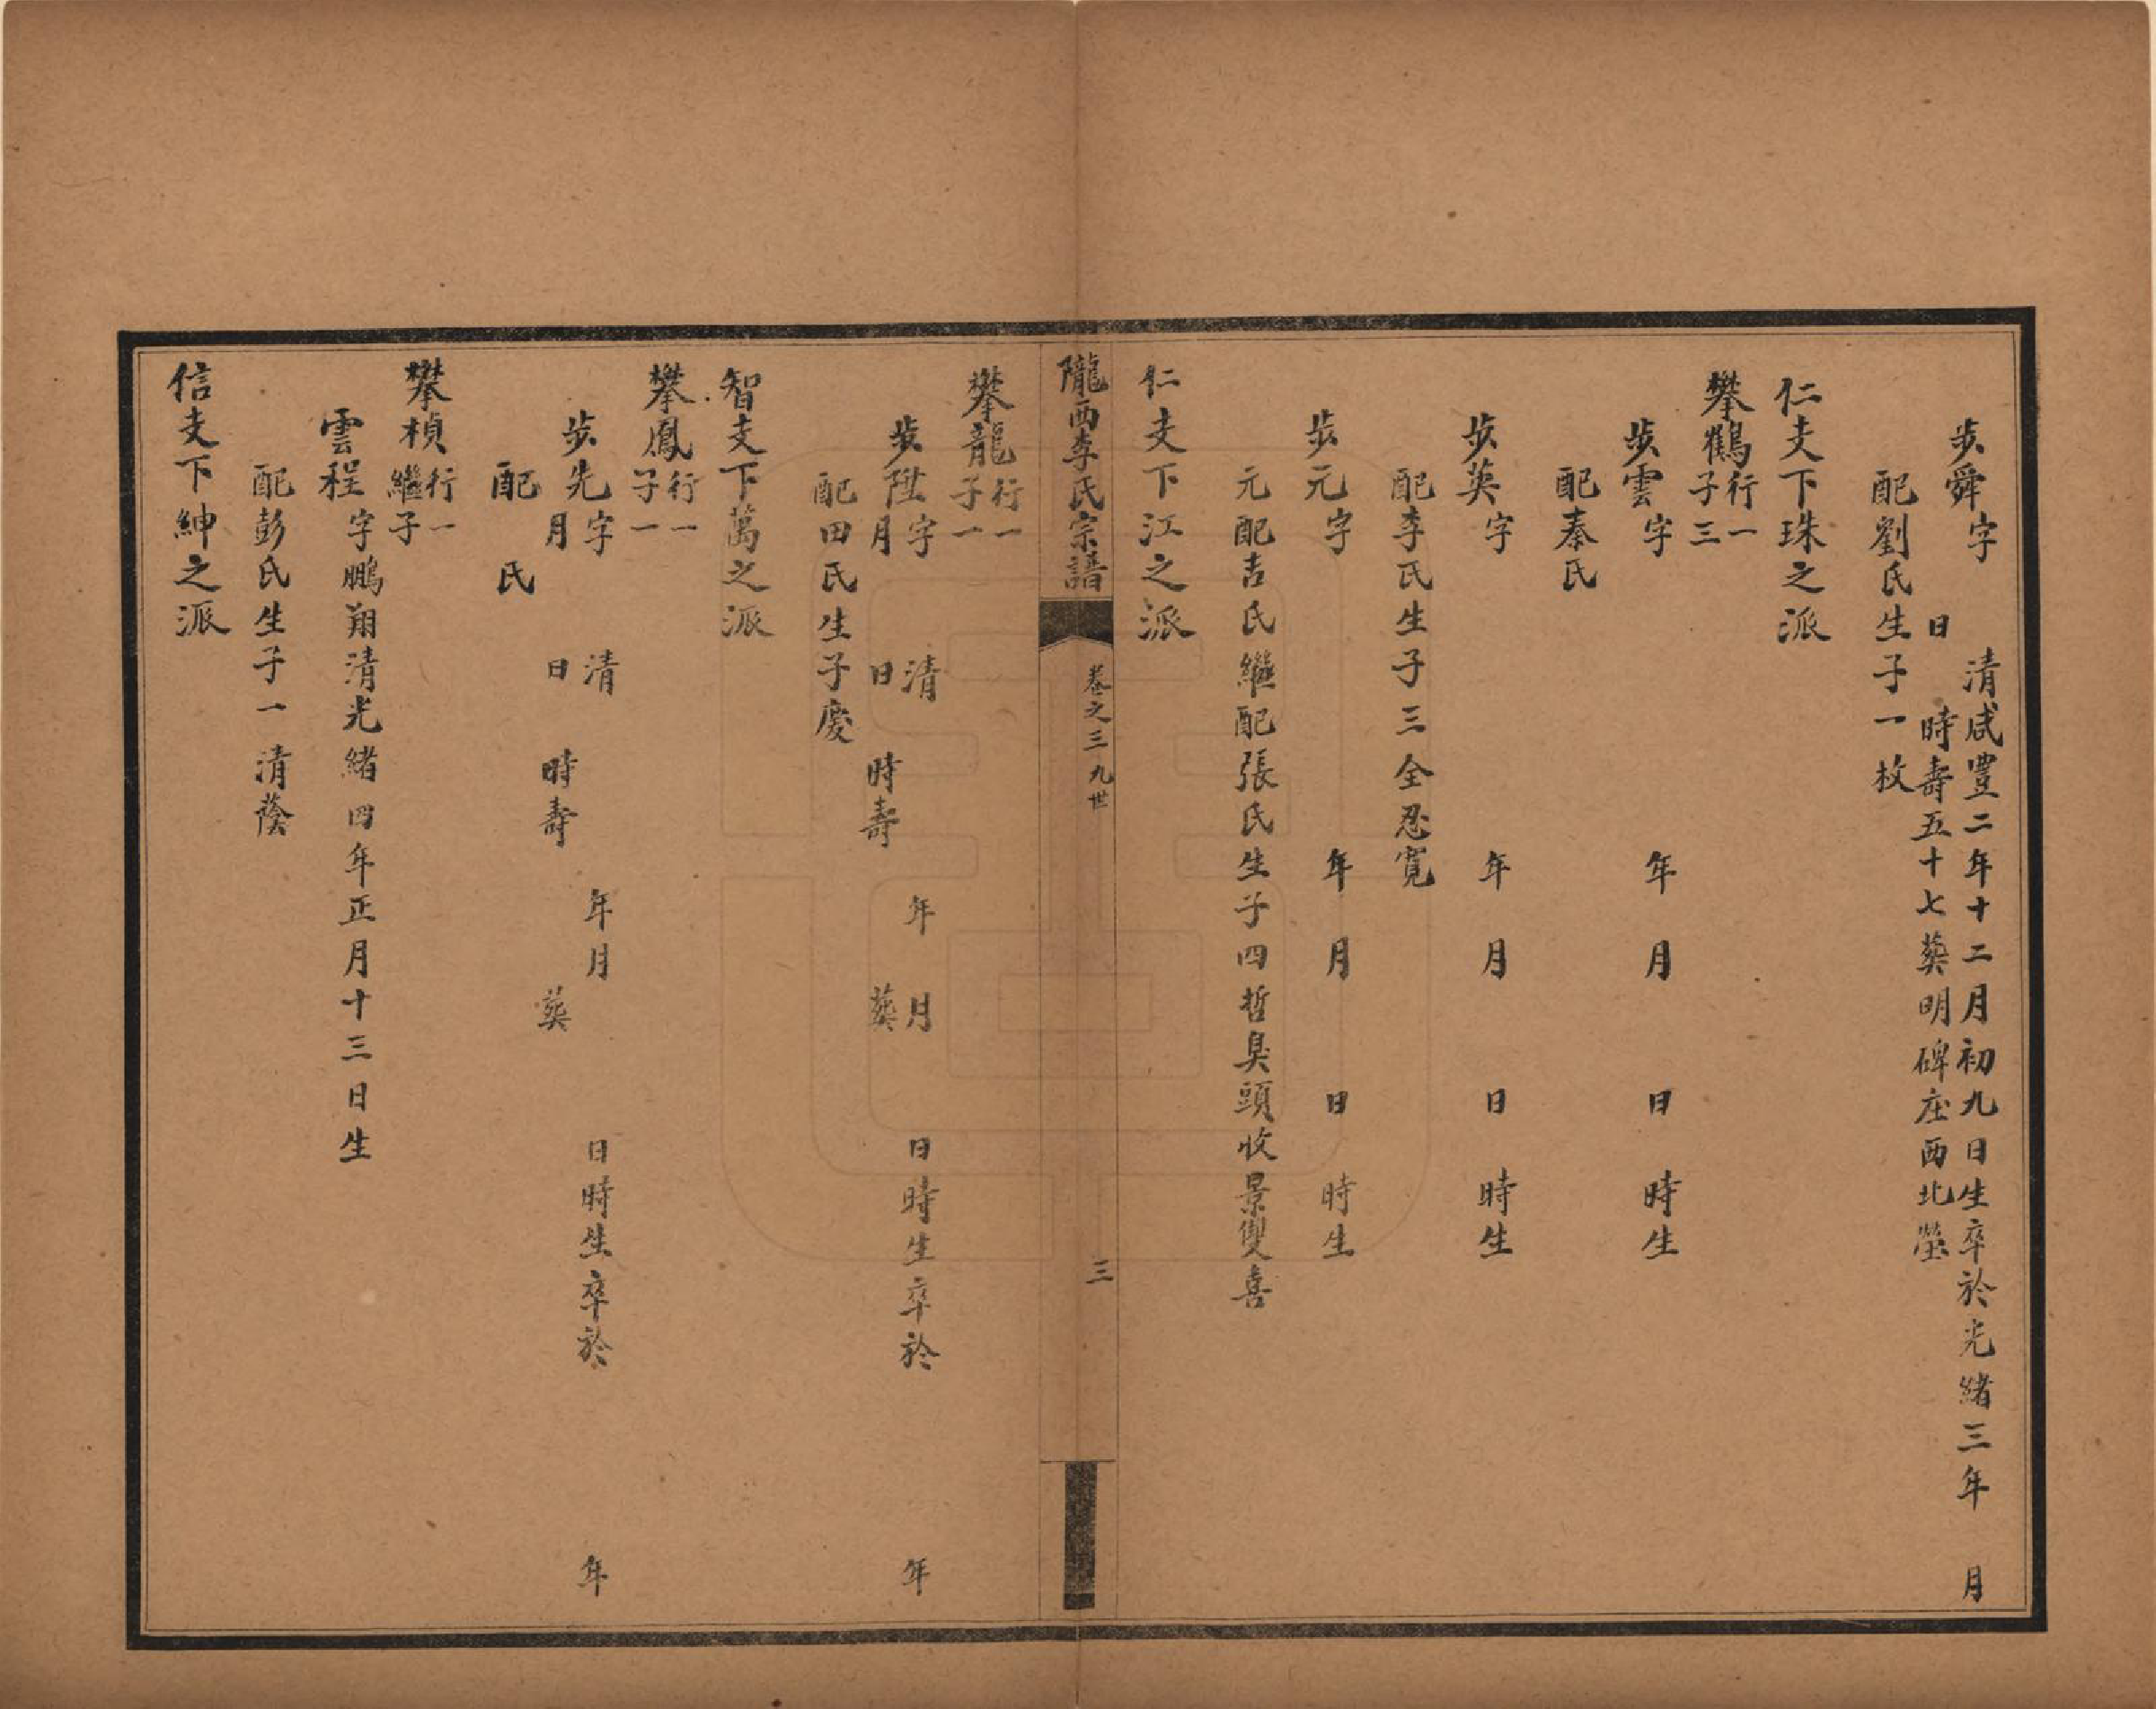 步舜字
清咸豐二年十二月初九日生卒於光緒三年 月
日 時壽五十七葬明碑座西北塋
配劉氏生子一枚
仁支下珠之派
攀鶴行一
子三
步雲字 年 月 日 時生
配秦氏
步英字 年 月 日 時生
配李氏生子三全忍寬
步元字 年 月 日 時生
元配吉氏繼配張氏生子四哲臭頭收景雙喜
仁支下江之派
隴西李氏宗譜 卷之三 九世 三
攀龍行一
子一
步陞字 清 年 月 日 時生卒於 年
月 日 時壽 葬
配田氏生子慶
智支下萬之派
攀鳳行一
子一
步先字 清 年 月 日 時生卒於 年
月 日 時壽 葬
配 氏
攀楨行一
繼子
雲程字鵬翔清光緒四年正月十三日生
配彭氏生子一清蔭
信支下紳之派